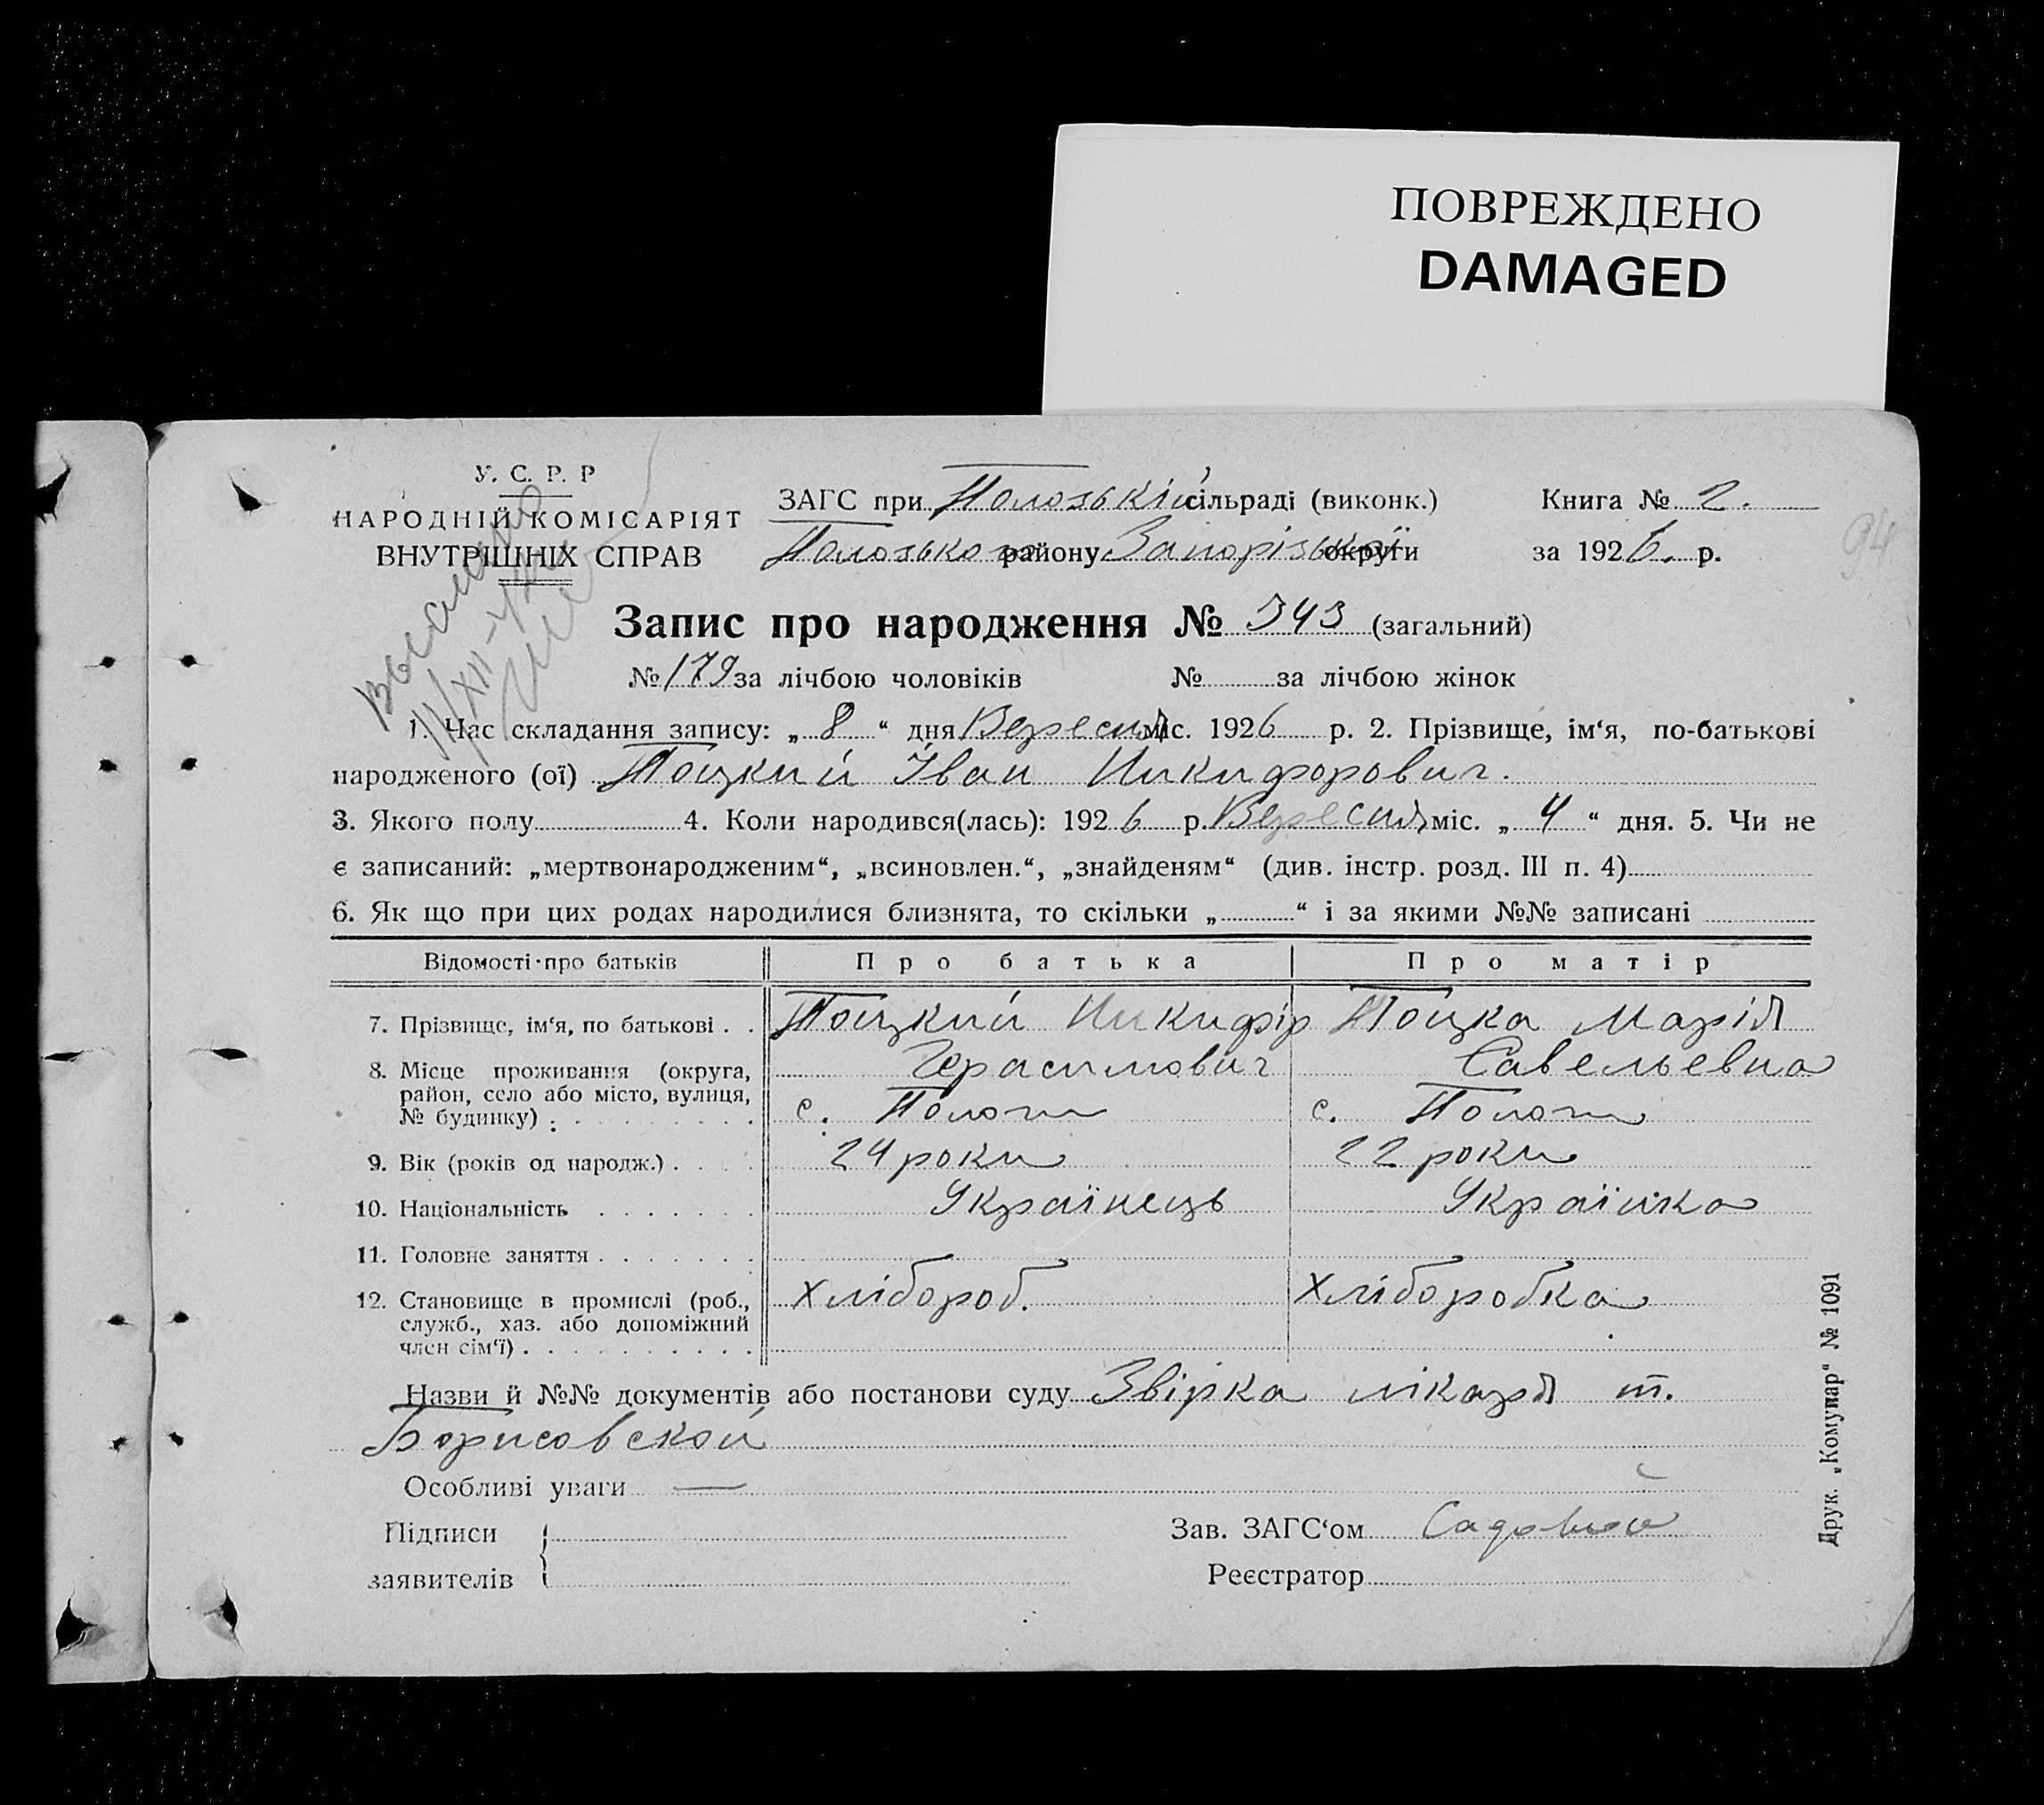 ПОВРЕЖДЕНО
DAMAGED
У. С. Р. Р
НАРОДНІЙ КОМІСАРІЯТ
ВНУТРІШНІХ СПРАВ
ЗАГС при Пологській сільраді (виконк.) Книга № 2.
Пологського району Запорізької округи за 1926. р.
94
Запис про народження № 343 (загальний)
№ 179 за лічбою чоловіків № за лічбою жінок
1. Час складання запису: „ 8 “ дня Вересня міс. 1926 р. 2. Прізвище, ім‘я, по-батькові
народженого (ої) Тоцкий Іван Никифорович.
3. Якого полу 4. Коли народився(лась): 1926 р. Вересня міс. „ 4 “ дня. 5. Чи не
є записаний: „мертвонародженим“, „всиновлен.“, „знайденям“ (див. інстр. розд. III п. 4)
6. Як що при цих родах народилися близнята, то скільки „ “ і за якими №№ записані
Відомості про батьків Про батька Про матір
7. Прізвище, ім‘я, по батькові . . Тоцкий Никифір Тоцка Марія
Герасимович Савельевна
8. Місце проживання (округа,
район, село або місто, вулиця,
№ будинку) : с. Пологи с. Пологи
9. Вік (років од народж.) 24 роки 22 роки
10. Національність Українець Українка
11. Головне заняття
12. Становище в промислі (роб.,
служб., хаз. або допоміжний
член сім‘ї) Хлібороб. Хліборобка
Назви й №№ документів або постанови суду Звірка лікаря т.
Борисовской
Особливі уваги —
Підписи
заявителів
Зав. ЗАГС‘ом
Реєстратор
Друк. „Комунар“ № 1091